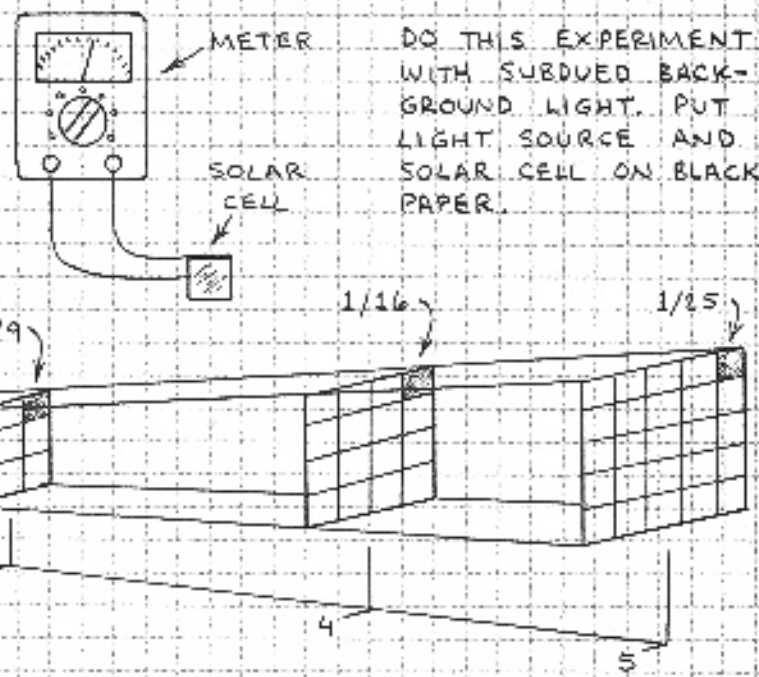 METER
DO THIS EXPERIMENT
WITH SUBDUED BACK-
GROUND LIGHT. PUT
LIGHT SOURCE AND
SOLAR CELL ON BLACK
PAPER.
SOLAR
CELL
1/16
1/25
4
5